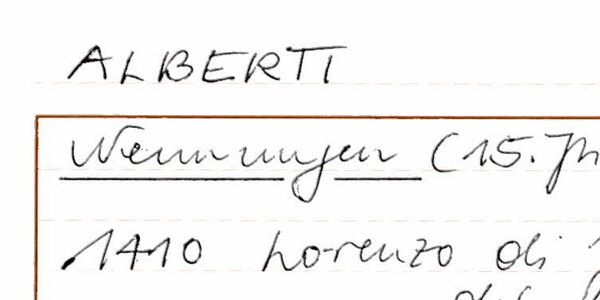 ALBERTI
Nennungen (15. Jh
1410 Lorenzo di